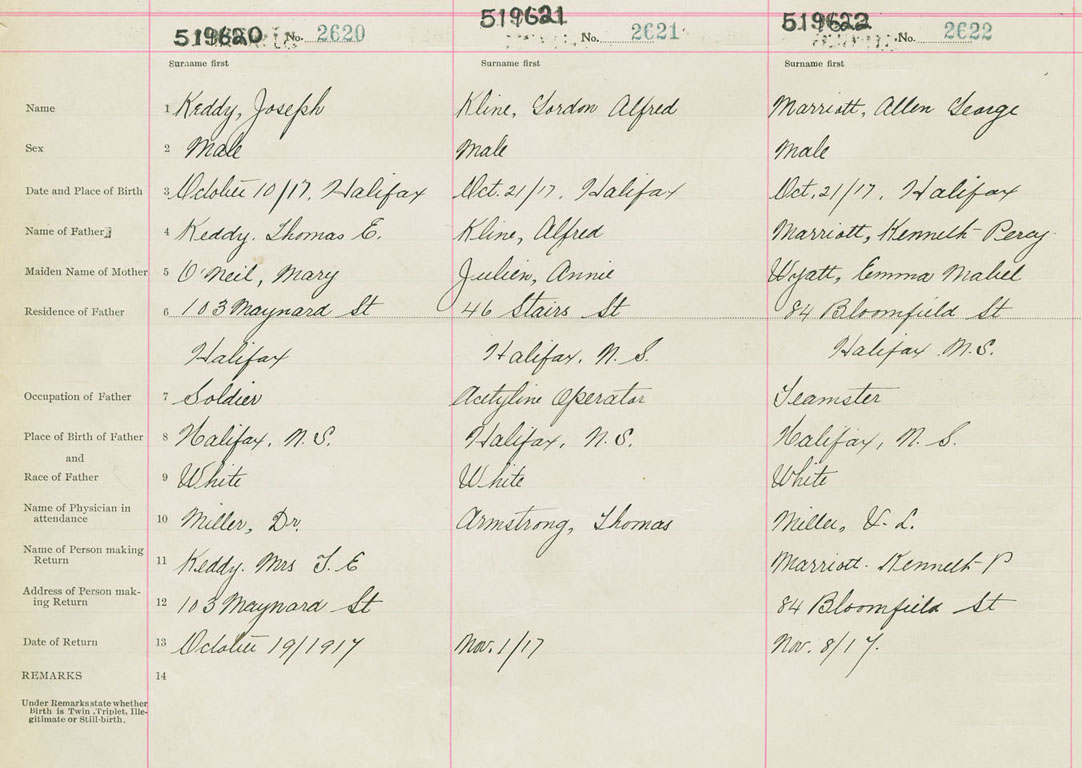 519620 No. 2620 519621 No. 2621 519622 No. 2622
Surname first Surname first Surname first
Name 1 Keddy, Joseph Kline, Gordon Alfred Marriott, Allen George
Sex 2 Male Male Male
Date and Place of Birth 3 October 10/17. Halifax Oct. 21/17. Halifax Oct. 21/17. Halifax
Name of Father 4 Keddy. Thomas E. Kline, Alfred Marriott, Kenneth Percy
Maiden Name of Mother 5 O'Neil, Mary Julien, Annie Wyatt, Emma Mabel
Residence of Father 6 103 Maynard St 46 Stairs St 84 Bloomfield St
Halifax Halifax. N.S. Halifax N.S.
Occupation of Father 7 Soldier Acetyline Operator Teamster
Place of Birth of Father 8 Halifax, N.S. Halifax, N.S. Halifax, N.S.
and
Race of Father 9 White White White
Name of Physician in
attendance 10 Miller, Dr. Armstrong, Thomas Miller, L.
Name of Person making
Return 11 Keddy. Mrs T. E Marriott. Kenneth P
Address of Person mak-
ing Return 12 103 Maynard St 84 Bloomfield St
Date of Return 13 October 19/1917 Nov. 1/17 Nov. 8/17.
REMARKS 14
Under Remarks state whether
Birth is Twin, Triplet, Ille-
gitimate or Still-birth.